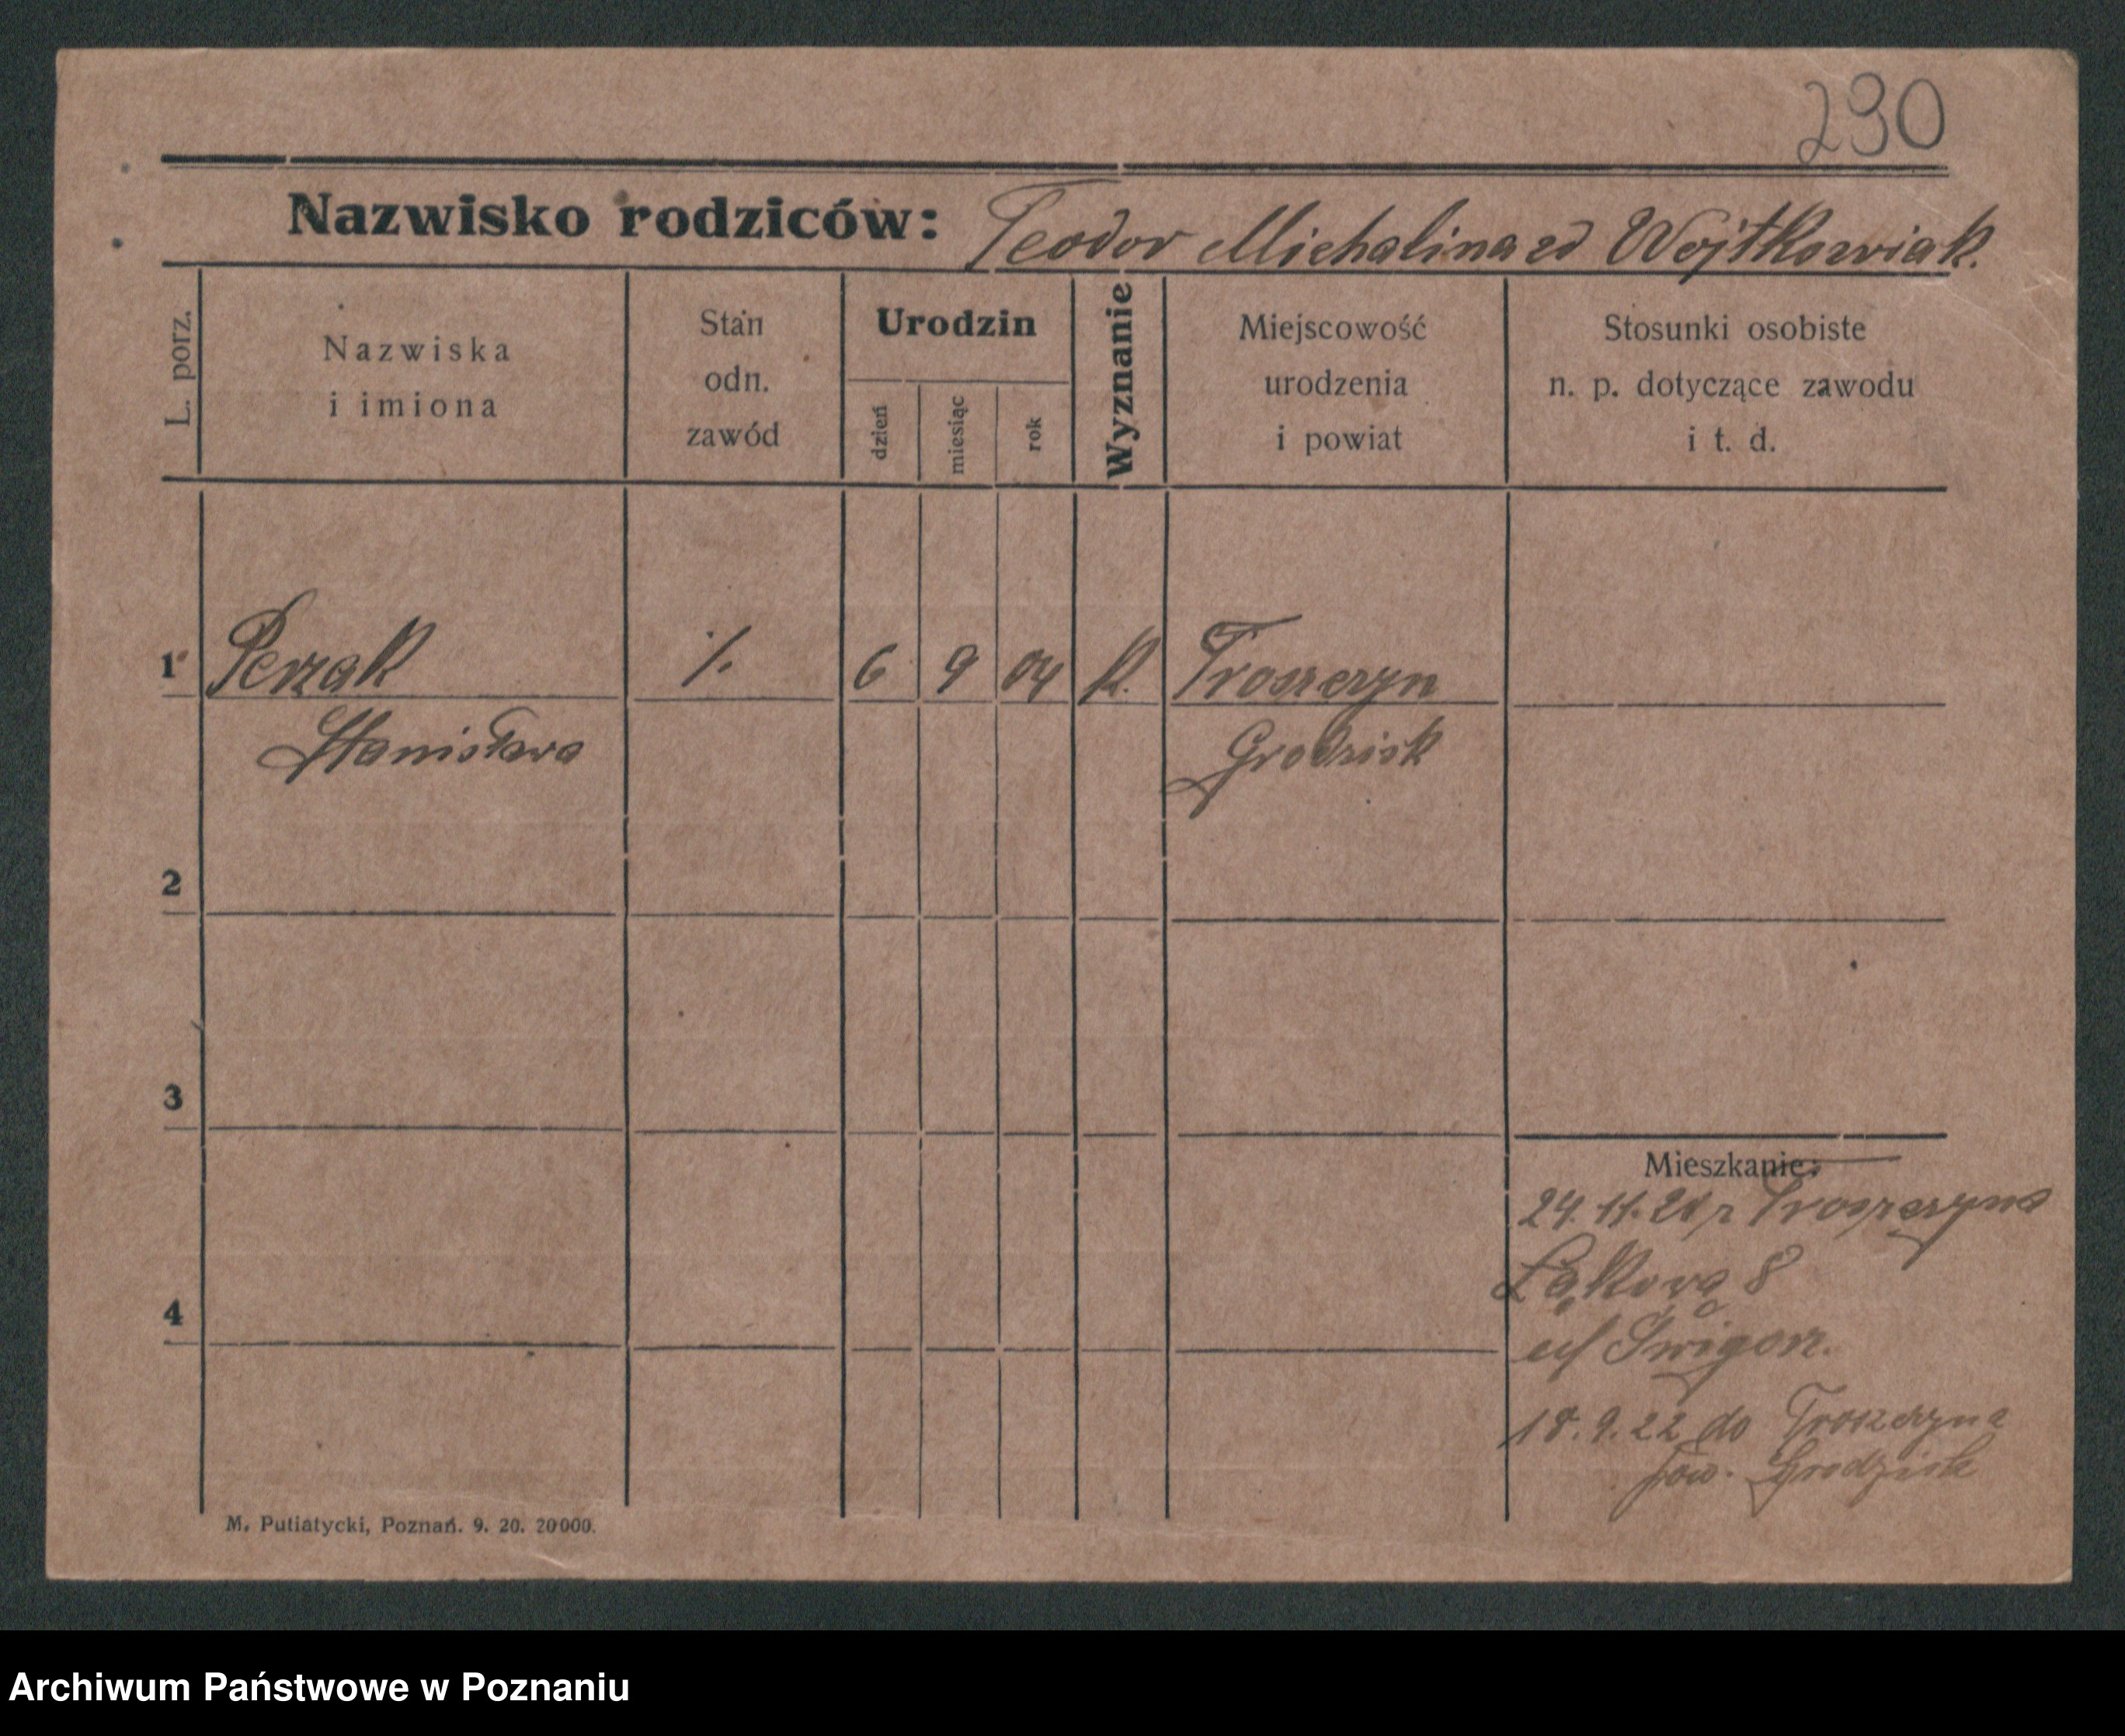 290
Nazwisko rodziców: Teodor Michalina zd Wojtkowiak.
L. porz.
Nazwiska
i imiona
Stan
odn.
zawód
Urodzin
dzień
miesiąc
rok
Wyznanie
Miejscowość
urodzenia
i powiat
Stosunki osobiste
n. p. dotyczące zawodu
i t. d.
1 Perzak ./. 6 9 04 K. Troszczyn
Stanisława Grodzisk
2
3
4
Mieszkanie:
24.11.21 z Troszczyna
Łąkowa 8
18.9.22 do Troszczyna
pow. Grodzisk
M. Putiatycki, Poznań. 9. 20. 20000.
Archiwum Państwowe w Poznaniu